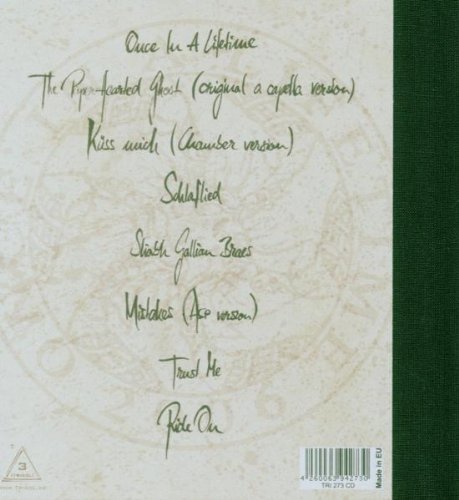 Once In A Lifetime
The Piper-Hearted Ghost (original a capella version)
Küss mich (Chamber version)
Schlaflied
Sliabh Gallian Braes
Mistakes (Ace version)
Trust Me
Ride On
3
4 260063 942730
TRI 273 CD
Made in EU